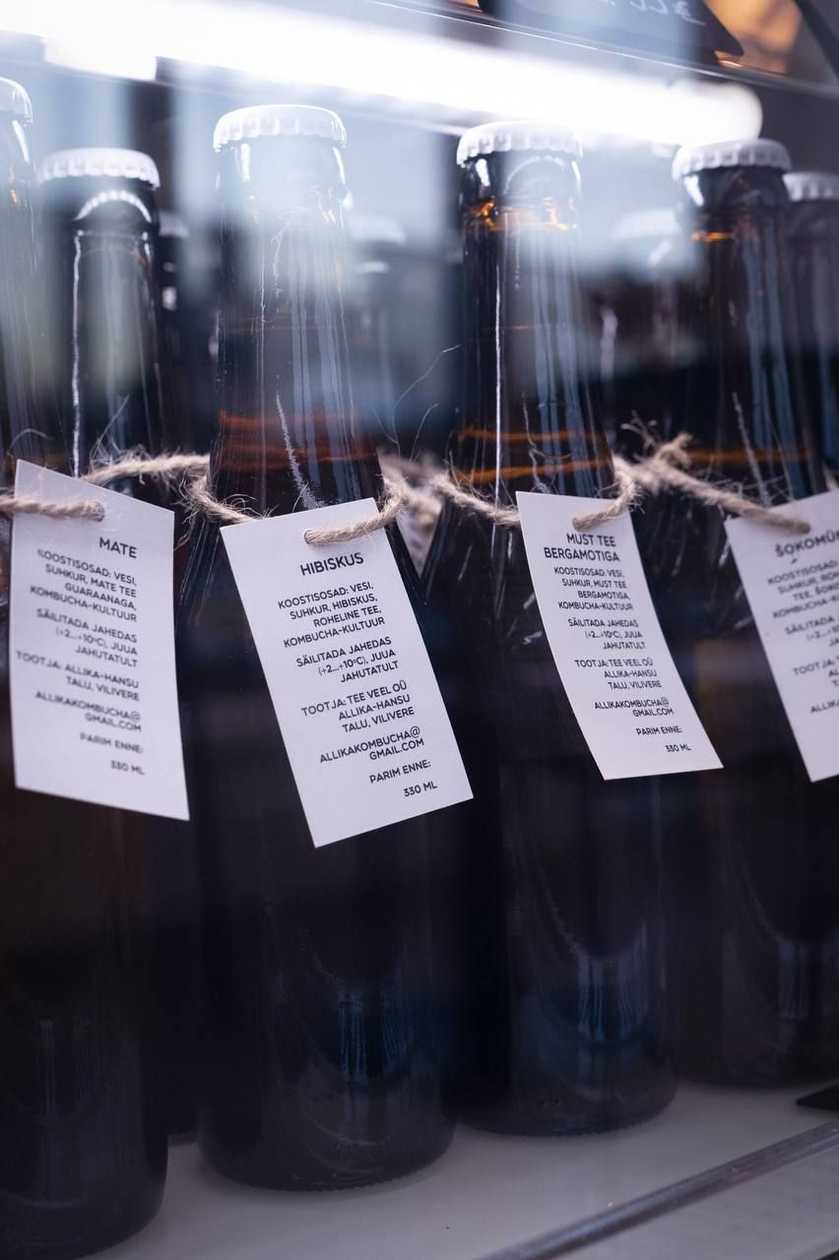 MATE
KOOSTISOSAD: VESI,
SUHKUR, MATE TEE
GUARAANAGA,
KOMBUCHA-KULTUUR
SÄILITADA JAHEDAS
(+2...+10°C), JUUA
JAHUTATULT
TOOTJA: ALLIKA-HANSU
TALU, VILIVERE
ALLIKAKOMBUCHA@
GMAIL.COM
PARIM ENNE:
330 ML
HIBISKUS
KOOSTISOSAD: VESI,
SUHKUR, HIBISKUS,
ROHELINE TEE,
KOMBUCHA-KULTUUR
SÄILITADA JAHEDAS
(+2...+10°C), JUUA
JAHUTATULT
TOOTJA: TEE VEEL OÜ
ALLIKA-HANSU
TALU, VILIVERE
ALLIKAKOMBUCHA@
GMAIL.COM
PARIM ENNE:
330 ML
MUST TEE
BERGAMOTIGA
KOOSTISOSAD: VESI,
SUHKUR, MUST TEE
BERGAMOTIGA,
KOMBUCHA-KULTUUR
SÄILITADA JAHEDAS
(+2...+10°C), JUUA
JAHUTATULT
TOOTJA: TEE VEEL OÜ
ALLIKA-HANSU
TALU, VILIVERE
ALLIKAKOMBUCHA@
GMAIL.COM
PARIM ENNE:
330 ML
KOOSTISOSAD:
SUHKUR,
TEE,
SÄILITADA